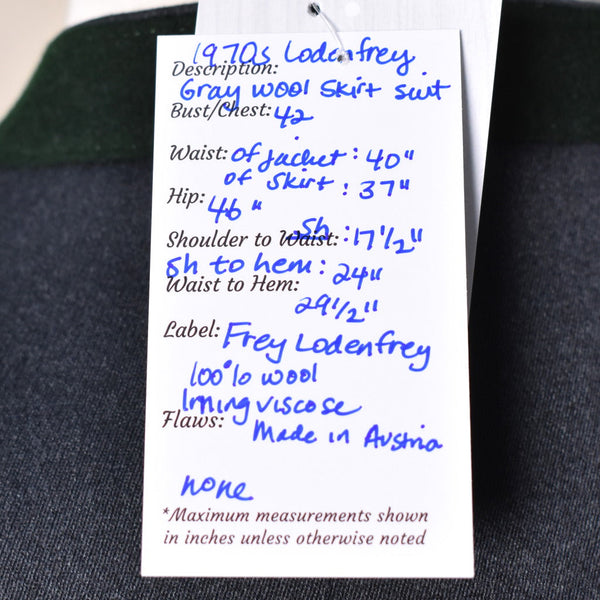 1970s Lodenfrey
Description:
Gray wool skirt suit
Bust/Chest: 42
Waist: of jacket: 40"
of skirt: 37"
Hip: 46"
sh
Shoulder to Waist: : 17 1/2"
sh to hem: 24"
Waist to Hem:
29 1/2"
Label: Frey Lodenfrey
100% wool
lining viscose
Flaws:
Made in Austria
none
*Maximum measurements shown
in inches unless otherwise noted